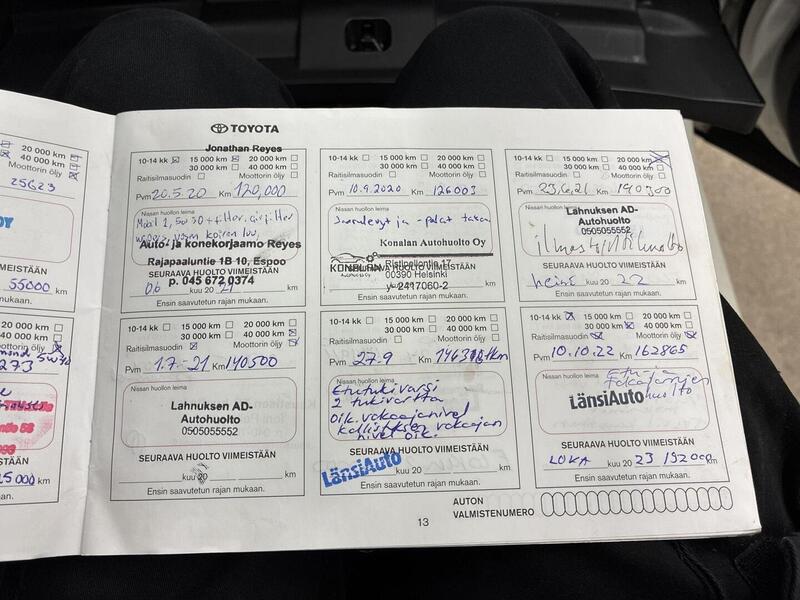 20 000 km
40 000 km
25623
55000 km
273
25000 km
TOYOTA
Jonathan Reyes
10-14 kk 15 000 km 20 000 km
30 000 km 40 000 km
Raitisilmasuodin Moottorin öljy
Pvm 20.5.20 Km 120,000
Nissan huollon leima
Auto- ja konekorjaamo Reyes
Rajapaaluntie 1B 10, Espoo
SEURAAVA HUOLTO VIIMEISTÄÄN
p. 045 672 0374
06 kuu 20 21
Ensin saavutetun rajan mukaan.
10-14 kk 15 000 km 20 000 km
30 000 km 40 000 km
Raitisilmasuodin Moottorin öljy
Pvm 10.9.2020 Km 126003
Nissan huollon leima
Jarrulevyt ja -palat takan
Konalan Autohuolto Oy
Ristipellontie 17
SEURAAVA HUOLTO VIIMEISTÄÄN
00390 Helsinki
y-2417060-2
Ensin saavutetun rajan mukaan.
10-14 kk 15 000 km 20 000 km
30 000 km 40 000 km
Raitisilmasuodin Moottorin öljy
Pvm 23.6.21 Km 140300
Nissan huollon leima
Lahnuksen AD-
Autohuolto
0505055552
ilmastointihuolto
SEURAAVA HUOLTO VIIMEISTÄÄN
heinä kuu 20 22 km
Ensin saavutetun rajan mukaan.
10-14 kk 15 000 km 20 000 km
30 000 km 40 000 km
Raitisilmasuodin Moottorin öljy
Pvm 1.7-21 Km 140500
Nissan huollon leima
Lahnuksen AD-
Autohuolto
0505055552
SEURAAVA HUOLTO VIIMEISTÄÄN
kuu 20 km
Ensin saavutetun rajan mukaan.
10-14 kk 15 000 km 20 000 km
30 000 km 40 000 km
Raitisilmasuodin Moottorin öljy
Pvm 27.9 Km
Nissan huollon leima
Etutukivarsi
2 tukivartta
oik. vakaajanivel
kallistuksen vakaajan
nivel oik.
SEURAAVA HUOLTO VIIMEISTÄÄN
LänsiAuto kuu 20 km
Ensin saavutetun rajan mukaan.
10-14 kk 15 000 km 20 000 km
30 000 km 40 000 km
Raitisilmasuodin Moottorin öljy
Pvm 10.10.22 Km 162865
Nissan huollon leima
Etu- ja
takajarrujen
LänsiAuto huolto
SEURAAVA HUOLTO VIIMEISTÄÄN
LOKA kuu 20 23 192000 km
Ensin saavutetun rajan mukaan.
AUTON
VALMISTENUMERO
13